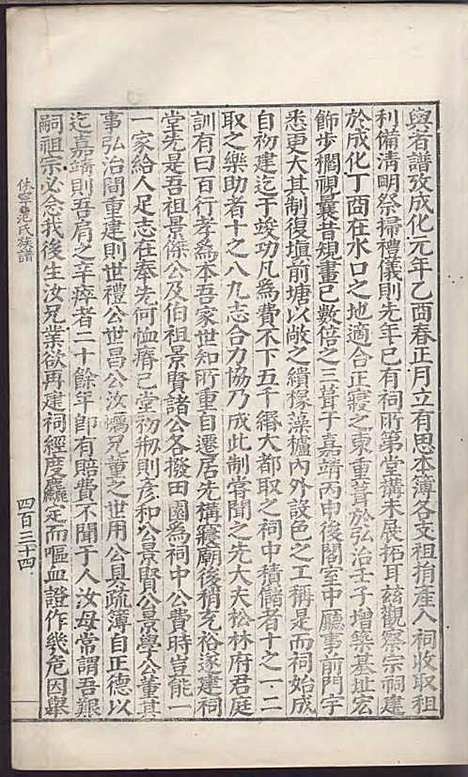 與若譜攷成化元年乙酉春正月立有思本簿各支祖捐產入祠收取租
利備清明祭掃禮儀則先年已有祠所第堂搆未展拓耳茲觀察宗祠建
於成化丁酉在水口之地適合正寢之東重葺於弘治壬子增築基址宏
飾步櫩視曩昔規畫已數倍之三葺于嘉靖丙申後閣至中廳事前門宇
悉更大其制復塡前塘以敞之繢椽藻櫨內外設色之工稱是而祠始成
自初建迄于竣功凡為費不下五千緡大都取之祠中積儲者十之一二
取之樂助者十之八九志合力協乃成此制嘗聞之先大夫松林府君庭
訓有曰百行孝為本吾家世知所重自遷居先構寢廟後稍充裕遂建祠
堂先是吾祖景傑公及伯祖景賢諸公各撥田園為祠中公費時豈能一
一家給人足志在奉先何恤瘠己堂初剏則彥和公景賢公景學公董其
事弘治間重建則世禮公世昌公汝蠣兄董之世用公具疏簿自正德以
迄嘉靖則吾肩之辛瘁者二十餘年即有賠費不聞于人汝母常謂吾艱
嗣祖宗必念我後生汝兄業欲再建祠經度麤定而嘔血證作幾危因舉
休寧范氏族譜
四百三十四